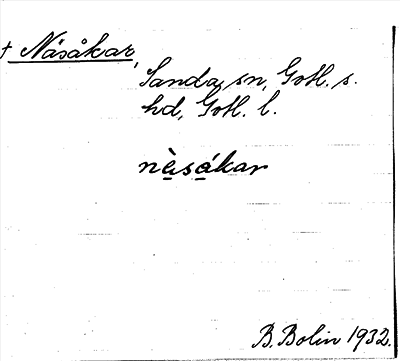 † Näsåkar,
Sanda sn, Gotl. s.
hd, Gotl. l.
nä̀såkar
B. Bolin 1932.